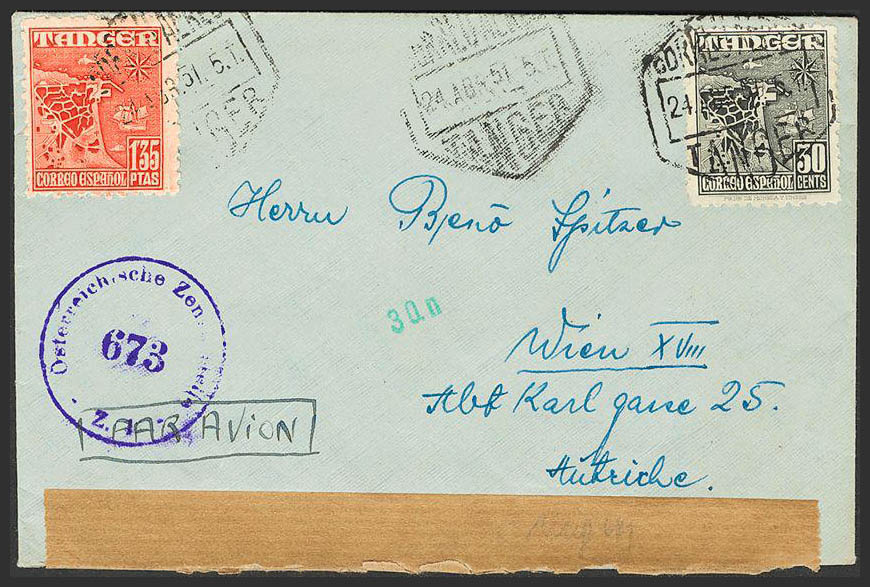 TANGER
1'35
PTAS
CORREO ESPAÑOL
24 ABR 51. 5.T.
TANGER
24.ABR.51. 5.T.
TANGER
TANGER
30
CENTS
CORREO ESPAÑOL
CORREO
24.
TANGER
Herrn Benö Spitzer
30.n
Wien XVIII
Abt Karl gasse 25.
Autriche.
Österreichische Zen
673
Z. 1.
PAR AVION